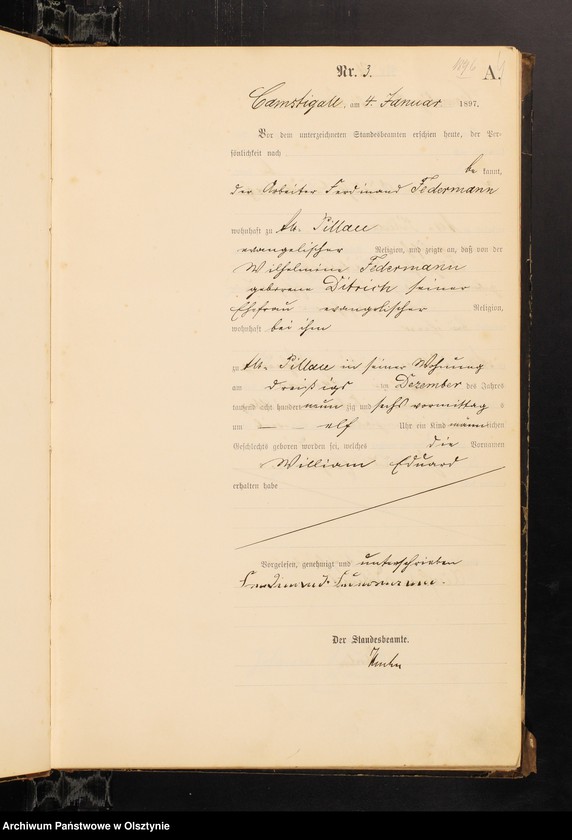 1896
Nr. 3. A.
Camstigall, am 4. Januar 1897.
Vor dem unterzeichneten Standesbeamten erschien heute, der Per-
sönlichkeit nach
be kannt,
der Arbeiter Ferdinand Federmann
wohnhaft zu Alt Pillau
evangelischer Religion, und zeigte an, daß von der
Wilhelmine Federmann
geborene Ditrich seiner
Ehefrau evangelischer Religion,
wohnhaft bei ihm
zu Alt Pillau in seiner Wohnung
am dreißigs ten Dezember des Jahres
tausend acht hundert neun zig und sechs vormittag s
um elf Uhr ein Kind männlichen
Geschlechts geboren worden sei, welches die Vornamen
William Eduard
erhalten habe
Vorgelesen, genehmigt und unterschrieben
Ferdinand Federmann.
Der Standesbeamte.
Archiwum Państwowe w Olsztynie